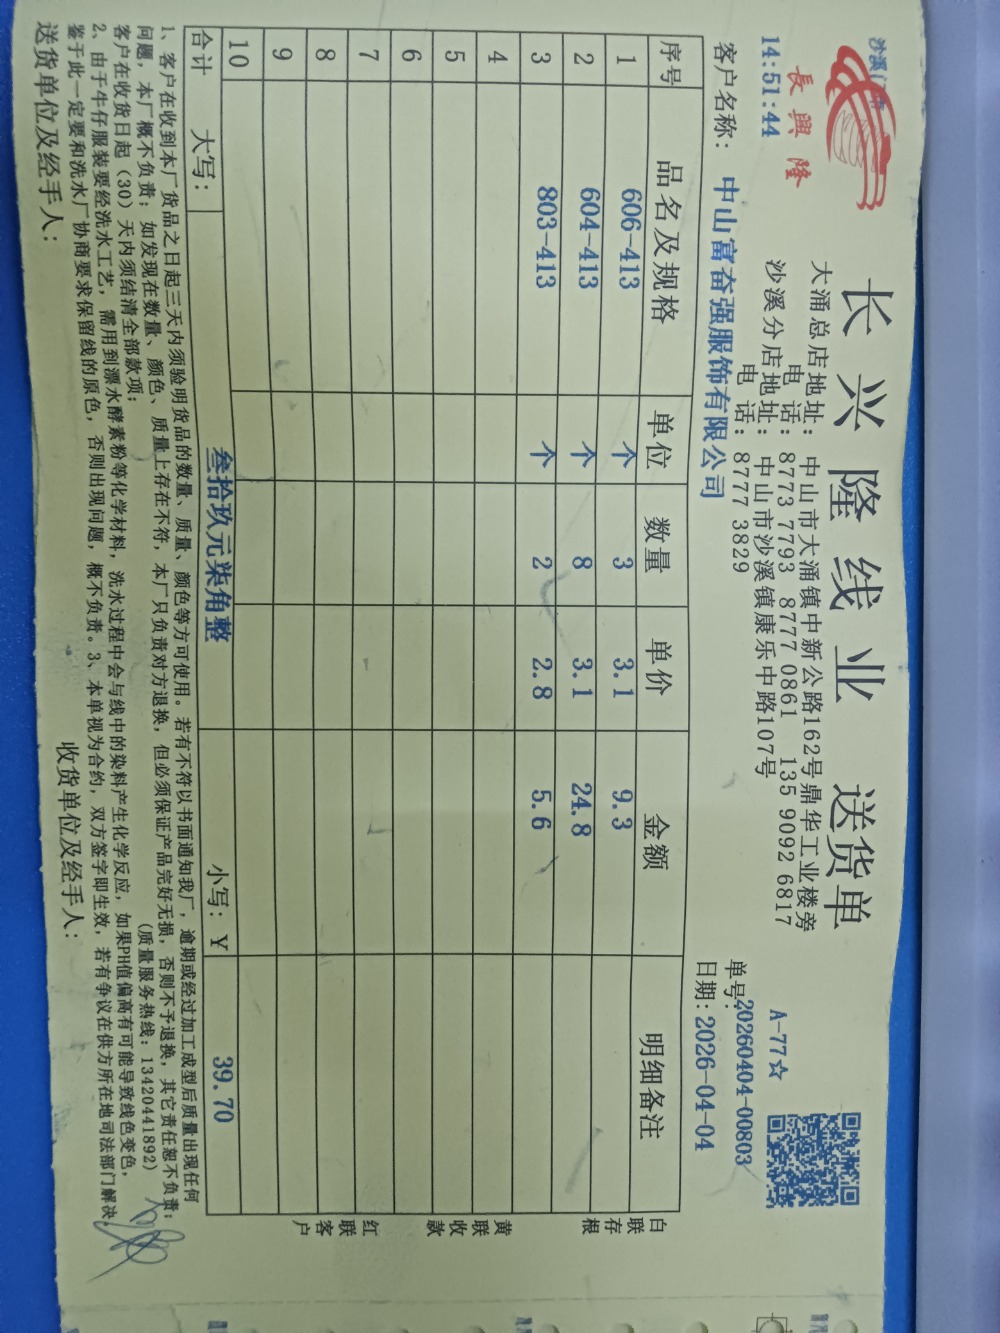 沙溪
14:51:44
長興隆
长兴隆线业 送货单
大涌总店地址: 中山市大涌镇中新公路162号鼎华工业楼旁
电 话: 8773 7793 8777 0861 135 9092 6817
沙溪分店地址: 中山市沙溪镇康乐中路107号
电 话: 8777 3829
A-77☆
单号:20260404-00803
客户名称: 中山富奋强服饰有限公司
日期: 2026-04-04
序号 品名及规格 单位 数量 单价 金额 明细备注
1 606-413 个 3 3.1 9.3
2 604-413 个 8 3.1 24.8
3 803-413 个 2 2.8 5.6
4
5
6
7
8
9
10
合计 大写: 叁拾玖元柒角整 小写: ¥ 39.70
白联存根
黄联收款
红联客户
1、客户在收到本厂货品之日起三天内须验明货品的数量、质量、颜色等方可使用。若有不符以书面通知我厂，逾期或经过加工成型后质量出现任何
问题，本厂概不负责；如发现在数量、颜色、质量上存在不符，本厂只负责对方退换，但必须保证产品完好无损，否则不予退换，其它责任恕不负责；
客户在收货日起（30）天内须结清全部款项； (质量服务热线: 13420441892)
2、由于牛仔服装要经洗水工艺，需用到漂水酵素粉等化学材料，洗水过程中会与线中的染料产生化学反应，如果PH值偏高有可能导致线色变色，
鉴于此一定要和洗水厂协商要求保留线的原色，否则出现问题，概不负责。3、本单视为合约，双方签字即生效，若有争议在供方所在地司法部门解决。
送货单位及经手人: 收货单位及经手人: